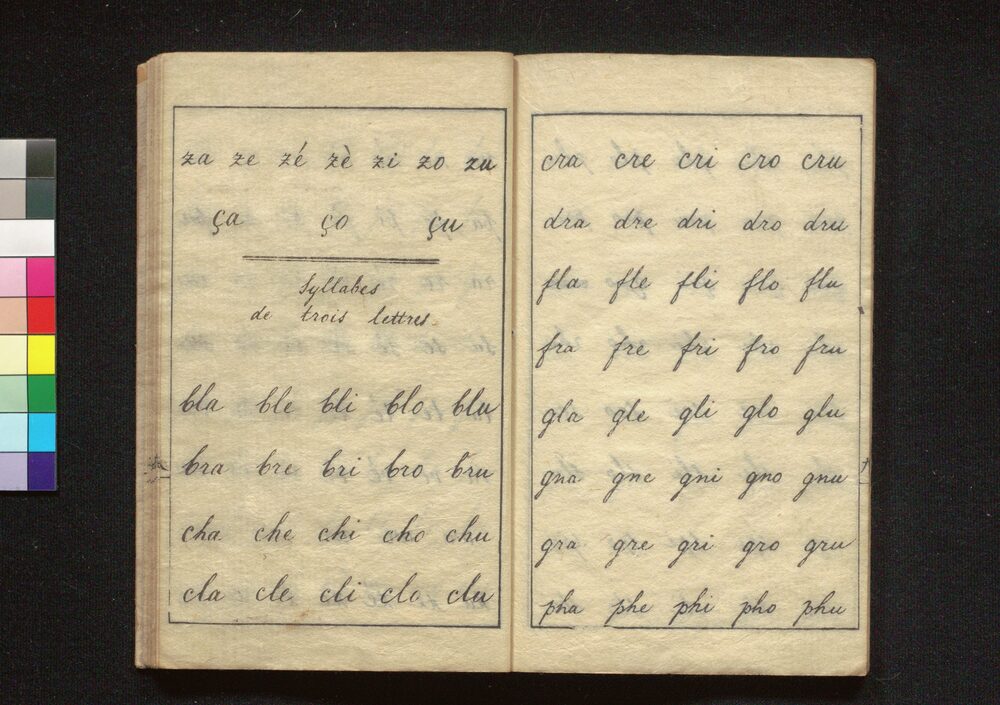 za ze zé zè zi zo zu
ça ço çu
Syllabes
de trois lettres.
bla ble bli blo blu
bra bre bri bro bru
cha che chi cho chu
cla cle cli clo clu
cra cre cri cro cru
dra dre dri dro dru
fla fle fli flo flu
fra fre fri fro fru
gla gle gli glo glu
gna gne gni gno gnu
gra gre gri gro gru
pha phe phi pho phu